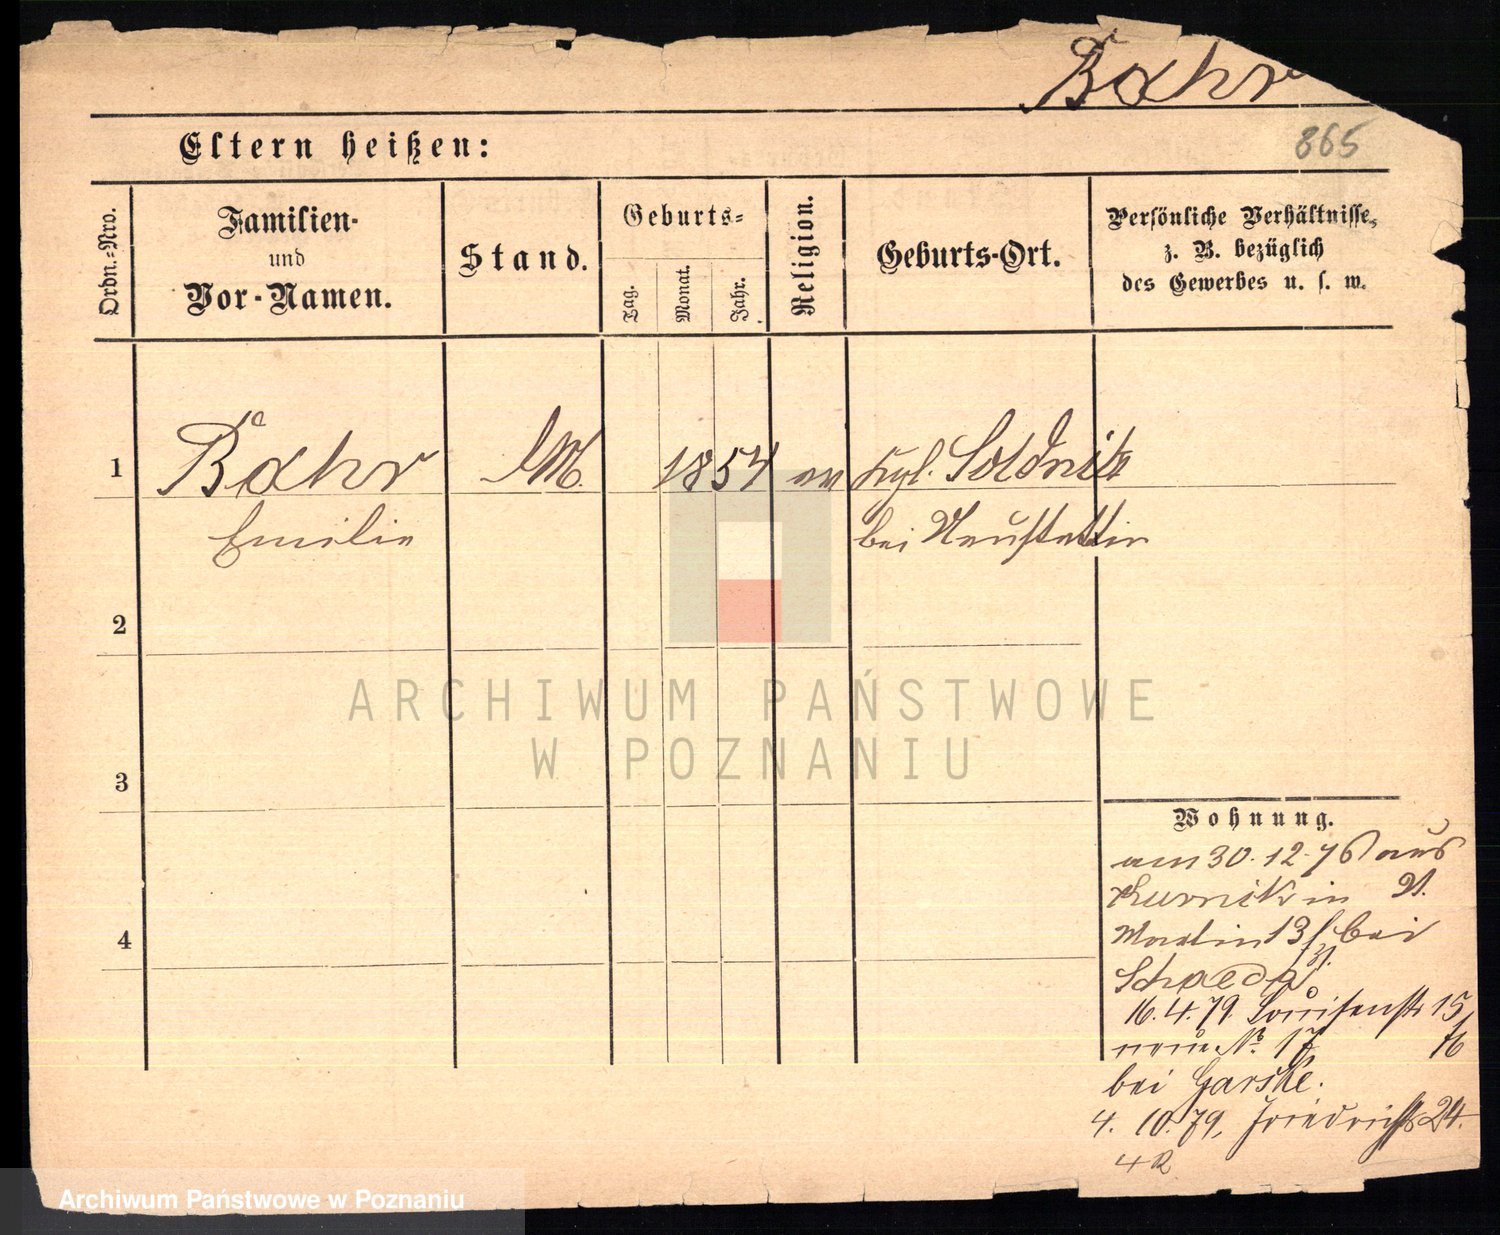 Baehr
865
Eltern heißen:
Ordn.-Nro.
Familien-
und
Vor-Namen.
Stand.
Geburts-
Tag.
Monat.
Jahr.
Religion.
Geburts-Ort.
Persönliche Verhältnisse,
z. B. bezüglich
des Gewerbes u. s. w.
1
Baehr
M.
1854
ev
Kgl. Soldnitz
Emilie
bei Neustettin
2
ARCHIWUM PAŃSTWOWE
W POZNANIU
3
Wohnung.
am 30.12.76 aus
Kurnik in St.
Martin 13 bei
4
16.4.79. Louisenstr 15
neue No. 17 16
bei Garske.
4. 10. 79, Friedrichstr 24.
Archiwum Państwowe w Poznaniu